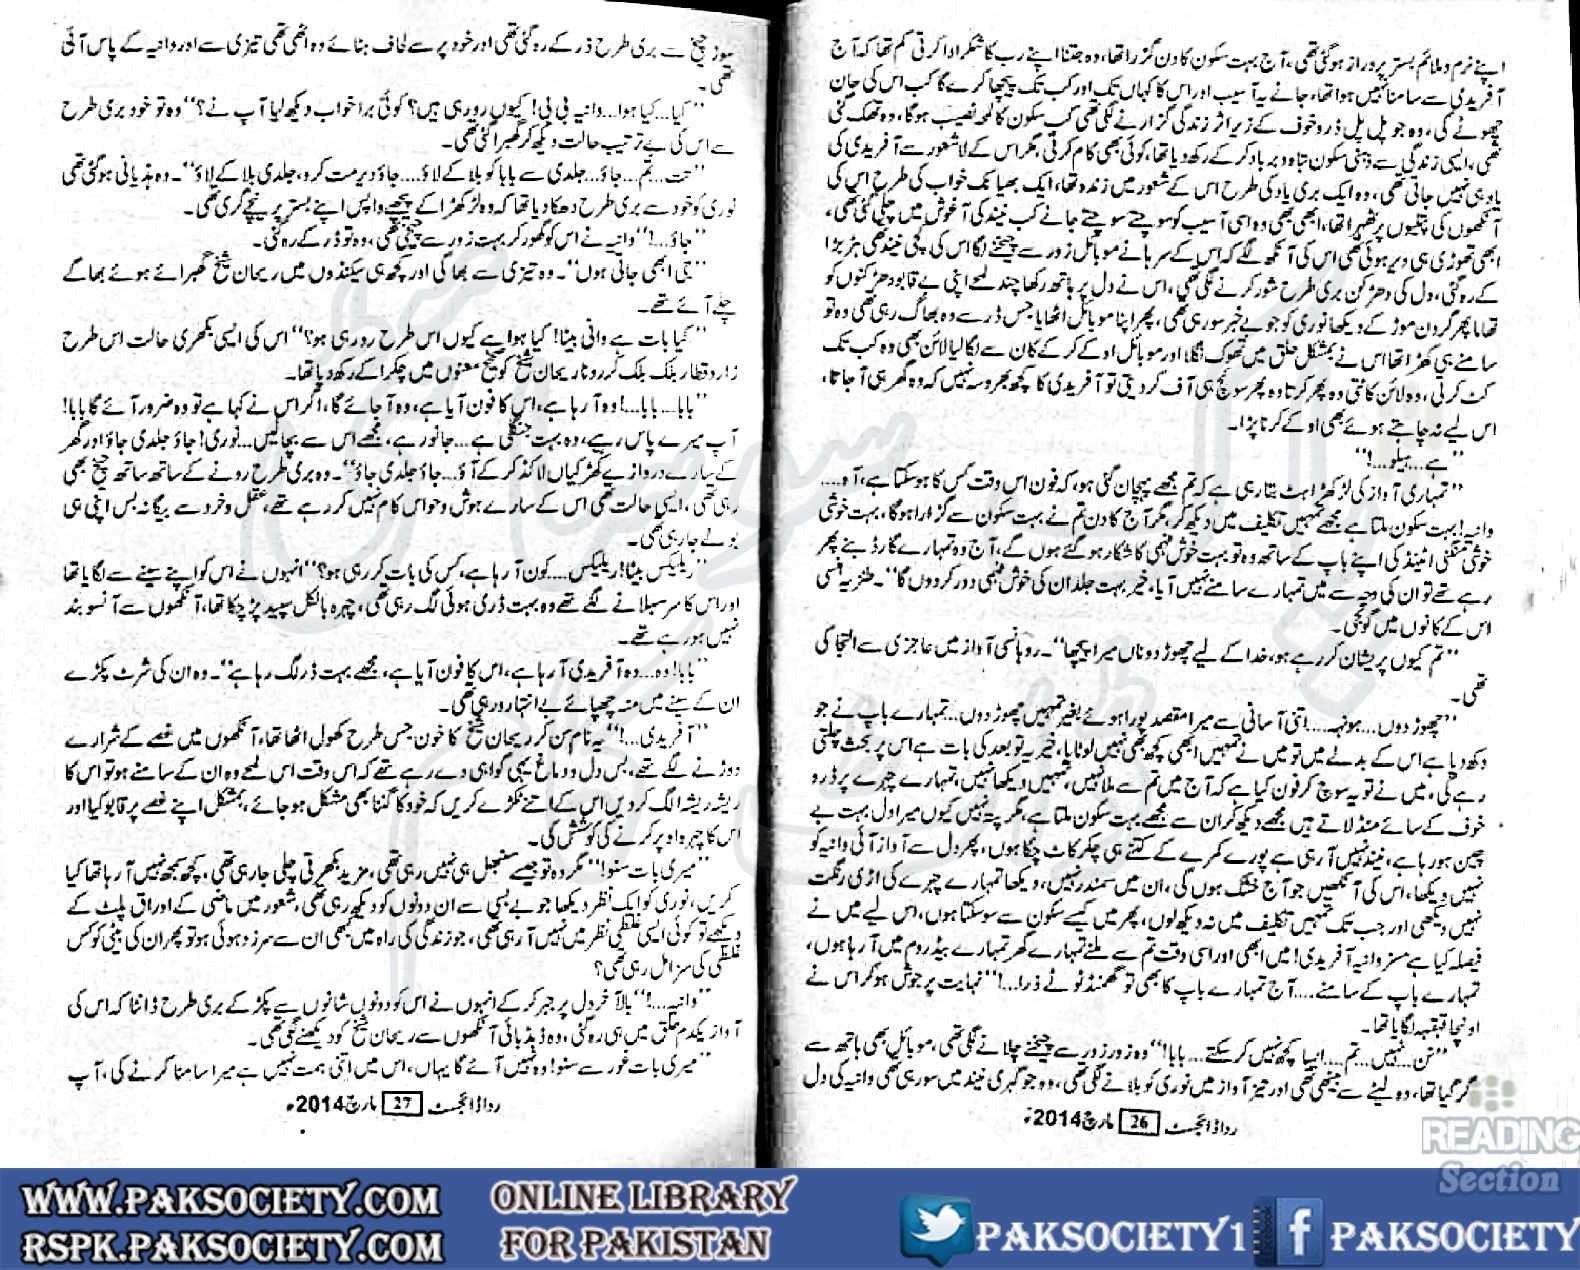 اپنے نرم و ملائم بستر پر دراز ہو گئی تھی، آج بہت سکون کا دن گزرا تھا، وہ جتنا اپنے رب کا شکر ادا کرتی کم تھا کہ آج
آفریدی سے سامنا نہیں ہوا تھا، جانے یہ آسیب اور اس کا کہاں تک اور کب تک پیچھا کرے گا کب اس کی جان
چھوٹے گی، وہ جو پل پل ڈر و خوف کے زیر اثر زندگی گزارنے لگی تھی کب سکون کا لمحہ نصیب ہو گا، وہ تھک گئی
تھی، ایسی زندگی سے ذہنی سکون تباہ و برباد کر کے رکھ دیا تھا، کوئی بھی کام کرتی، مگر اس کے لاشعور سے آفریدی کی
یاد ہی نہیں جاتی تھی، وہ ایک بری یاد کی طرح اس کے شعور میں زندہ تھا، ایک بھیانک خواب کی طرح اس کی
آنکھوں کی پتلیوں پر ٹھہرا تھا، ابھی بھی وہ اسی آسیب کو سوچتے سوچتے جانے کب نیند کی آغوش میں چلی گئی تھی،
ابھی تھوڑی ہی دیر ہوئی تھی اس کی آنکھ لگے کہ اس کے سرہانے موبائل زور سے چیخنے لگا اس کی کچی نیند تھی ہڑبڑا
کے رہ گئی، دل کی دھڑکن بری طرح شور کرنے لگی تھی، اس نے دل پر ہاتھ رکھا چند لمحے اپنی بے قابو دھڑکنوں کو
تھاما پھر گردن موڑ کے دیکھا نوری کو جو بے خبر سو رہی تھی، پھر اپنا موبائل اٹھایا جس ڈر سے وہ بھاگ رہی تھی وہ تو
سامنے ہی کھڑا تھا اس نے بمشکل حلق میں تھوک نگلا اور موبائل او کے کر کے کان سے لگا لیا لائن بھی وہ کب تک
کٹ کرتی، وہ لائن کاٹتی وہ پھر کرتا وہ پھر سوئچ ہی آف کر دیتی تو آفریدی کا کچھ بھروسہ نہیں کہ وہ گھر ہی آ جاتا،
اس لیے نہ چاہتے ہوئے بھی او کے کرنا پڑا۔
"ہے...ہیلو...!"
"تمہاری آواز کی لڑکھڑاہٹ بتا رہی ہے کہ تم مجھے پہچان گئی ہو، کہ فون اس وقت کس کا ہو سکتا ہے، آہ....
وانیہ! بہت سکون ملتا ہے مجھے تمہیں تکلیف میں دیکھ کر، مگر آج کا دن تم نے بہت سکون سے گزارا ہو گا، بہت خوشی
خوشی منگنی اٹینڈ کی اپنے باپ کے ساتھ وہ تو بہت خوش فہمی کا شکار ہو گئے ہوں گے، آج وہ تمہارے گارڈ بنے پھر
رہے تھے تو ان کی وجہ سے میں تمہارے سامنے نہیں آیا، خیر بہت جلد ان کی خوش فہمی دور کر دوں گا"۔ طنزیہ ہنسی
اس کے کانوں میں گونجی۔
"تم کیوں پریشان کر رہے ہو، خدا کے لیے چھوڑ دو ناں میرا پیچھا"۔ روہانسی آواز میں عاجزی سے التجا کی
تھی۔
"چھوڑ دوں....ہونہہ....اتنی آسانی سے میرا مقصد پورا ہوئے بغیر تمہیں چھوڑ دوں...تمہارے باپ نے جو
دکھ دیا ہے اس کے بدلے میں تو میں نے تمہیں ابھی کچھ بھی نہیں لوٹایا، خیر یہ تو بعد کی بات ہے اس پر بحث چلتی
رہے گی، میں نے تو یہ سوچ کر فون کیا ہے کہ آج میں تم سے ملا نہیں، تمہیں دیکھا نہیں، تمہارے چہرے پر ڈر و
خوف کے سائے منڈلاتے ہیں مجھے دیکھ کر ان سے مجھے بہت سکون ملتا ہے، مگر پتہ نہیں کیوں میرا دل بہت بے
چین ہو رہا ہے، نیند نہیں آ رہی ہے پورے کمرے کے کتنے ہی چکر کاٹ چکا ہوں، پھر دل سے آواز آئی وانیہ کو
نہیں دیکھا، اس کی آنکھیں جو آج خشک ہوں گی، ان میں سمندر نہیں، دیکھا تمہارے چہرے کی اڑی رنگت
نہیں دیکھی اور جب تک تمہیں تکلیف میں نہ دیکھ لوں، پھر میں کیسے سکون سے سو سکتا ہوں، اس لیے میں نے
فیصلہ کیا ہے مسز وانیہ آفریدی! میں ابھی اور اسی وقت تم سے ملنے تمہارے گھر تمہارے بیڈ روم میں آ رہا ہوں،
تمہارے باپ کے سامنے....آج تمہارے باپ کا بھی تو گھمنڈ ٹوٹے ذرا...!" نہایت پر جوش ہو کر اس نے
اونچا قہقہہ لگایا تھا۔
"نن...نہیں...تم...ایسا کچھ نہیں کر سکتے....بابا!" وہ زور زور سے چیخنے چلانے لگی تھی، موبائل بھی ہاتھ سے
گر گیا تھا، وہ لیٹے سے بیٹھی تھی اور تیز آواز میں نوری کو بلانے لگی تھی، وہ جو گہری نیند میں سو رہی تھی وانیہ کی دل
رداڈائجسٹ 26 مارچ 2014ء
سوز چیخ سے بری طرح ڈر کے رہ گئی تھی اور خود پر سے لحاف ہٹائے وہ اٹھی تھی تیزی سے اور وانیہ کے پاس آئی
تھی۔
"کیا...کیا ہوا...وانیہ بی بی! کیوں رو رہی ہیں؟ کوئی برا خواب دیکھ لیا آپ نے؟" وہ تو خود بری طرح
سے اس کی بے ترتیب حالت دیکھ کر گھبرا گئی تھی۔
"تت...تم...جاؤ...جلدی سے بابا کو بلا کے لاؤ....جاؤ دیر مت کرو، جلدی بلا کے لاؤ"۔ وہ ہذیانی ہو گئی تھی
نوری کو خود سے بری طرح دھکا دیا تھا کہ وہ لڑکھڑا کے پیچھے واپس اپنے بستر پر نیچے گری تھی۔
"جاؤ...!" وانیہ نے اس کو گھور کر بہت زور سے چیخی تھی، وہ تو ڈر کے رہ گئی۔
"جی ابھی جاتی ہوں"۔ وہ تیزی سے بھاگی اور کچھ ہی سیکنڈوں میں ریحان شیخ گھبرائے ہوئے بھاگے
چلے آئے تھے۔
"کیا بات ہے وانی بیٹا! کیا ہوا ہے کیوں اس طرح رو رہی ہو؟" اس کی ایسی بکھری حالت اس طرح
زار و قطار بلک بلک کر رونا ریحان شیخ کو صحیح معنوں میں چکرا کے رکھ دیا تھا۔
"بابا...بابا...! وہ آ رہا ہے، اس کا فون آیا ہے، وہ آ جائے گا، اگر اس نے کہا ہے تو وہ ضرور آئے گا بابا!
آپ میرے پاس رہے، وہ بہت جنگلی ہے...جانور ہے، مجھے اس سے بچا لیں...نوری! جاؤ جلدی جاؤ اور گھر
کے سارے دروازے کھڑکیاں لاکڈ کر کے آؤ...جاؤ جلدی جاؤ"۔ وہ بری طرح رونے کے ساتھ ساتھ چیخ بھی
رہی تھی، ایسی حالت تھی اس کے سارے ہوش و حواس کام نہیں کر رہے تھے، عقل و خرد سے بیگانہ بس اپنی ہی
بولے جا رہی تھی۔
"ریلیکس بیٹا! ریلیکس....کون آ رہا ہے، کس کی بات کر رہی ہو؟" انہوں نے اس کو اپنے سینے سے لگایا تھا
اور اس کا سر سہلانے لگے تھے وہ بہت ڈری ہوئی لگ رہی تھی، چہرہ بالکل سپید پڑ چکا تھا، آنکھوں سے آنسو بند
نہیں ہو رہے تھے۔
"بابا! وہ...وہ آفریدی آ رہا ہے، اس کا فون آیا ہے، مجھے بہت ڈر لگ رہا ہے"۔ وہ ان کی شرٹ پکڑے
ان کے سینے میں منہ چھپائے بے انتہا رو رہی تھی۔
"آفریدی...!" یہ نام سن کر ریحان شیخ کا خون جس طرح کھول اٹھا تھا، آنکھوں میں غصے کے شرارے
دوڑنے لگے تھے، بس دل و دماغ یہی گواہی دے رہے تھے کہ اس وقت اس لمحے وہ ان کے سامنے ہو تو اس کا
ریشہ ریشہ الگ کر دیں اس کے اتنے ٹکڑے کریں کہ خود کا گننا بھی مشکل ہو جائے، بمشکل اپنے غصے پر قابو کیا اور
اس کا چہرہ اوپر کرنے کی کوشش کی۔
"میری بات سنو!" مگر وہ تو جیسے سنبھل ہی نہیں رہی تھی، مزید بکھرتی چلی جا رہی تھی، کچھ سمجھ نہیں آ رہا تھا کیا
کریں، نوری کو ایک نظر دیکھا جو بے بسی سے ان دونوں کو دیکھ رہی تھی، شعور میں ماضی کے اوراق پلٹ کے
دیکھے تو کوئی ایسی غلطی نظر میں نہیں آ رہی تھی، جو زندگی کی راہ میں کبھی ان سے سرزد ہوئی ہو تو پھر ان کی بیٹی کو کس
غلطی کی سزا مل رہی تھی؟
"وانیہ...!" بالآخر دل پر جبر کر کے انہوں نے اس کو دونوں شانوں سے پکڑ کے بری طرح ڈانٹا کہ اس کی
آواز یکدم حلق میں ہی رہ گئی، وہ ڈبڈبائی آنکھوں سے ریحان شیخ کو دیکھنے لگی تھی۔
"میری بات غور سے سنو! وہ نہیں آئے گا یہاں، اس میں اتنی ہمت نہیں ہے میرا سامنا کرنے کی، آپ
رداڈائجسٹ 27 مارچ 2014ء
READING
Section
WWW.PAKSOCIETY.COM
RSPK.PAKSOCIETY.COM
ONLINE LIBRARY
FOR PAKISTAN
PAKSOCIETY1
PAKSOCIETY